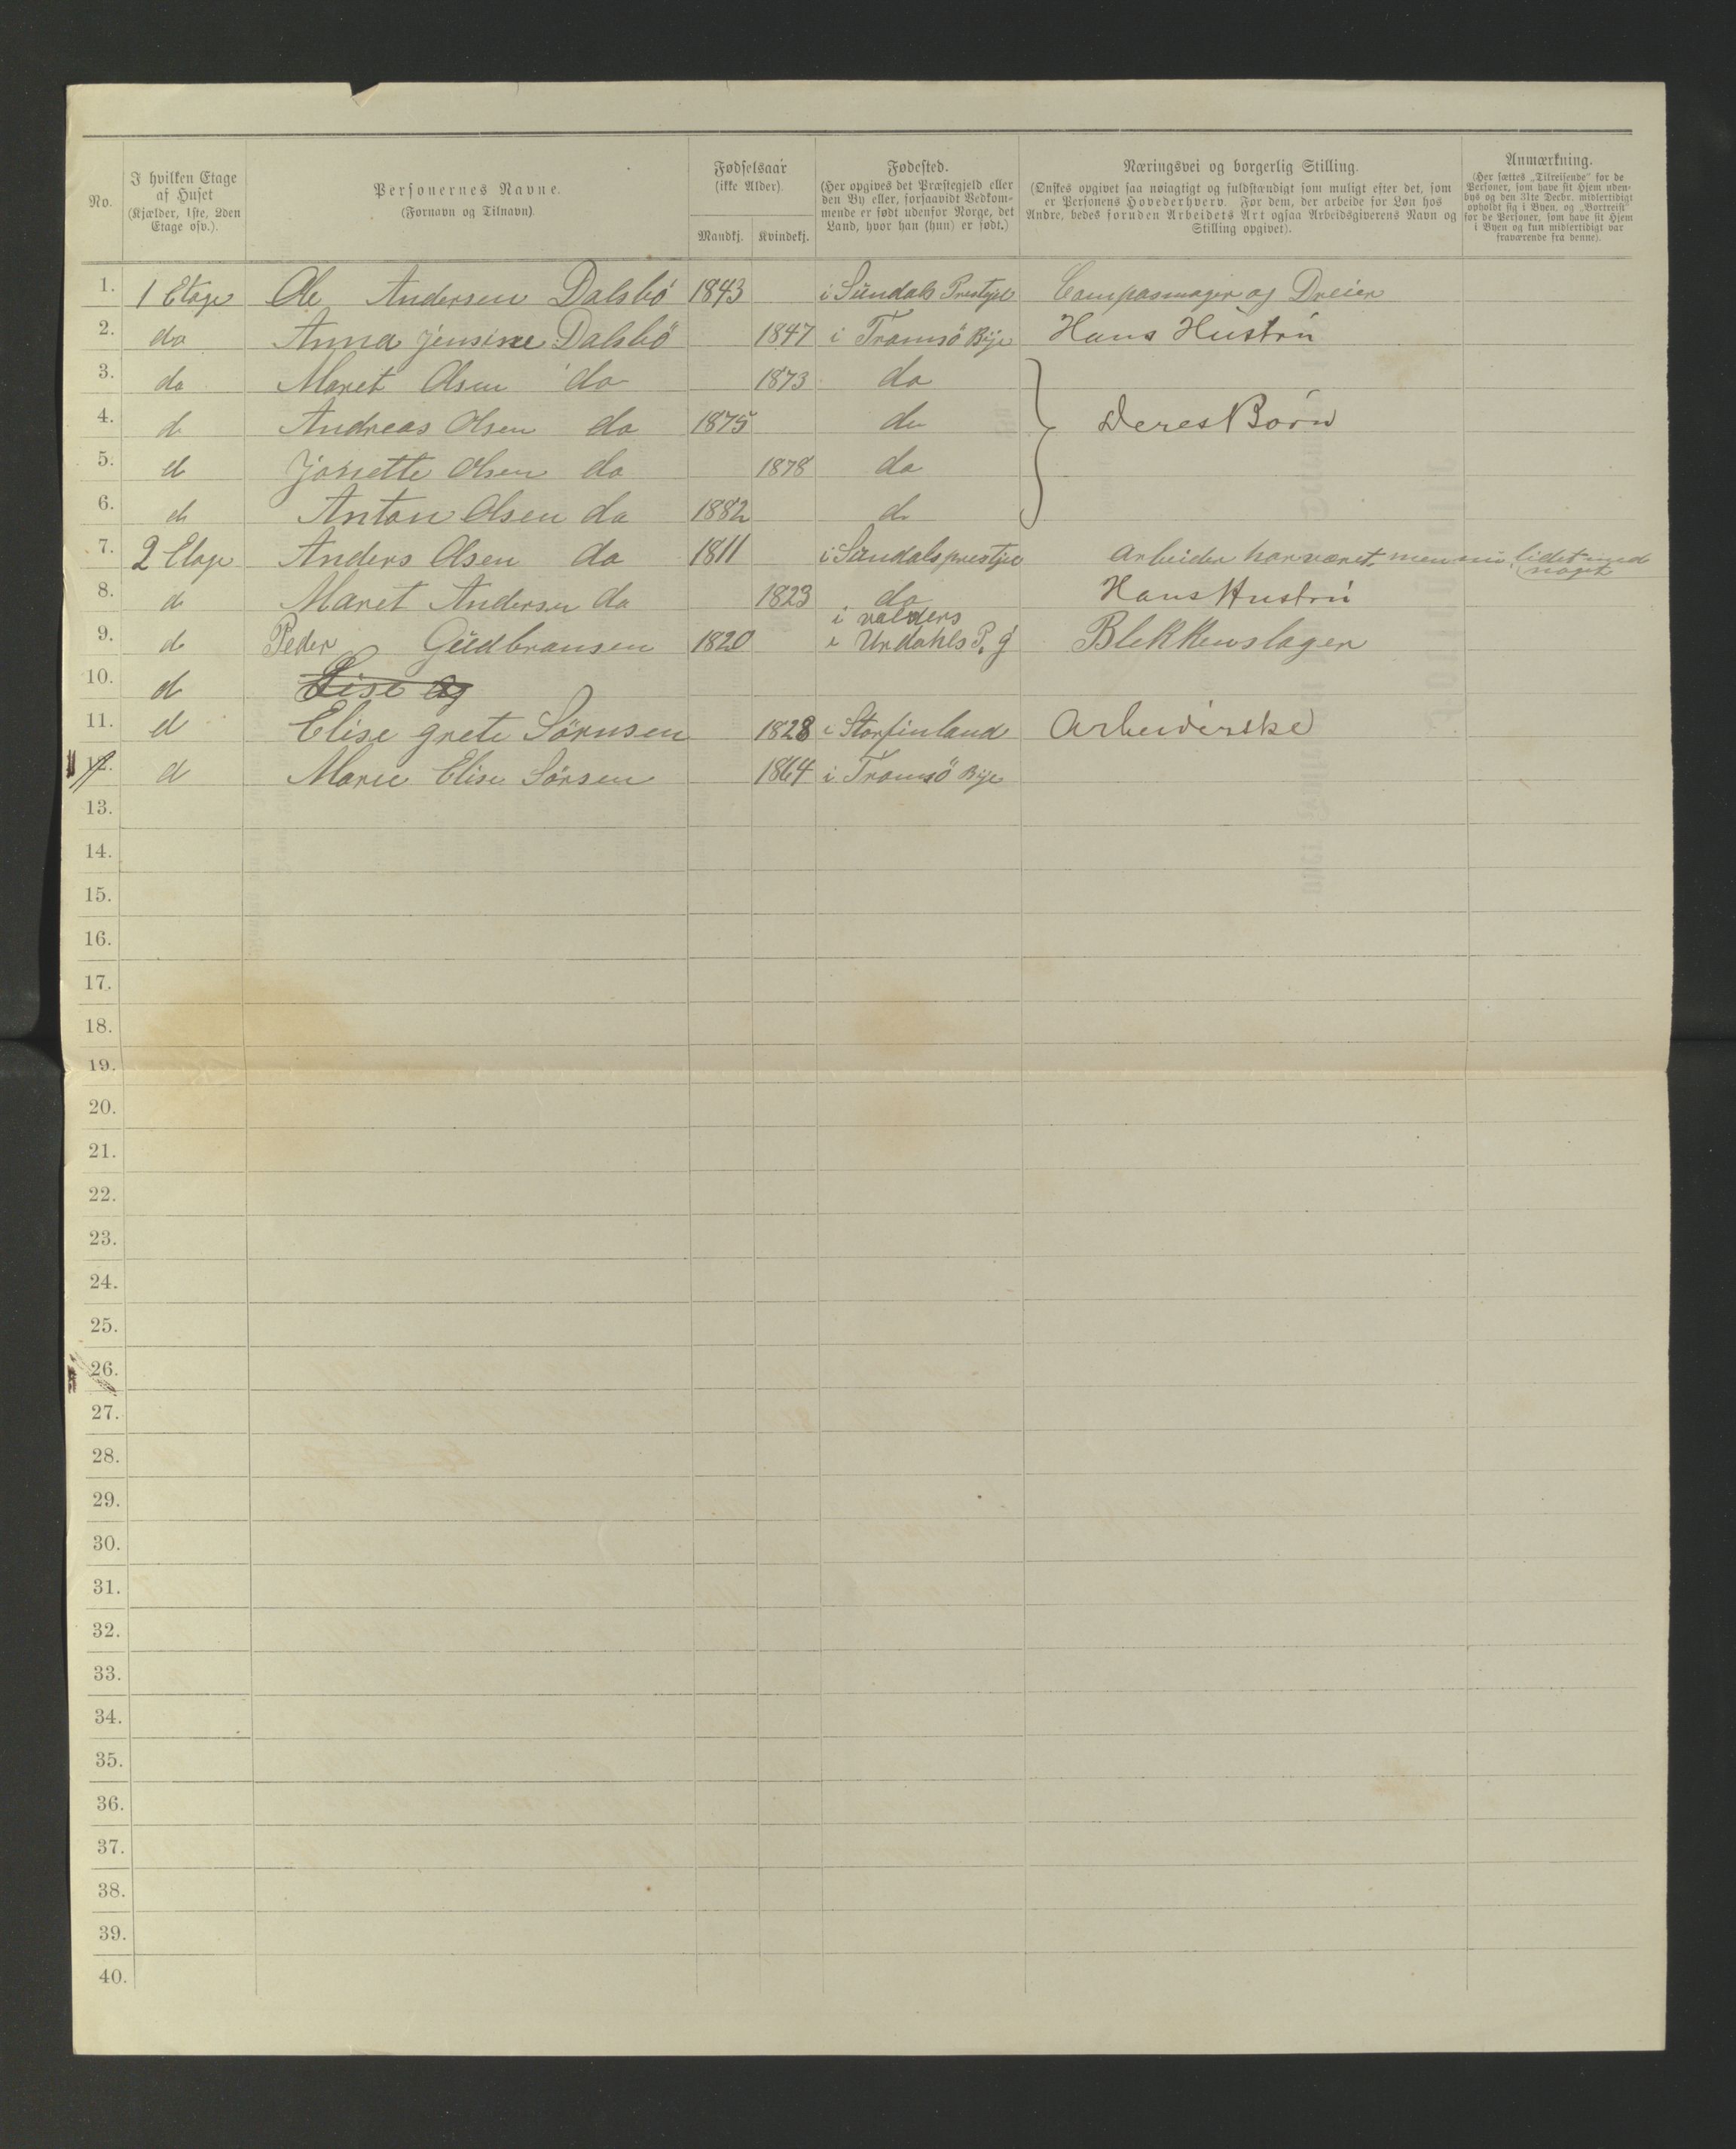 No.
I hvilken Etage
af Huset
(Kjælder, 1ste, 2den
Etage osv.).
Personernes Navne.
(Fornavn og Tilnavn)
Fødselsaar
(ikke Alder).
Mandkj. Kvindekj.
Fødested.
(Her opgives det Præstegjeld eller
den By eller, forsaavidt Vedkom-
mende er født udenfor Norge, det
Land, hvor han (hun) er født.)
Næringsvei og borgerlig Stilling.
(Ønskes opgivet saa nøiagtigt og fuldstændigt som muligt efter det, som
er Personens Hovederhverv. For dem, der arbeide for Løn hos
Andre, bedes foruden Arbeidets Art ogsaa Arbeidsgiverens Navn og
Stilling opgivet).
Anmærkning.
(Her sættes „Tilreisende" for de
Personer, som have sit Hjem uden-
bys og den 31te Decbr. midlertidigt
opholdt sig i Byen, og „Bortreist"
for de Personer, som have sit Hjem
i Byen og kun midlertidigt var
fraværende fra denne).
1. 1 Etage Ole Andersen Dalsbö 1843 i Sündals Prestgjel Compasmager og Dreier
2. do Anna Jensine Dalsbö 1847 i Tromsö Bÿe Hans Hustrü
3. do Maret Olsen do 1873 do
4. d Andreas Olsen do 1875 do Deres Börn
5. d Jonette Olsen do 1878 do
6. d Anton Olsen do 1882 d
7. 2 Etage Anders Olsen do 1811 i Sündals prestje Arbeider har været, men nü lidet med
noget
8. d Maret Andersen do 1823 do Hans Hustrü
i valders
9. d Peder Güdbransen 1820 i Urdahls P. g Blekkenslager
10. d Elise og
11. d Elise grete Sörnsen 1828 i Storfinland Arbeiderske
12. d Marie Elise Sörsen 1864 i Tromsö Bÿe
13.
14.
15.
16.
17.
18.
19.
20.
21.
22.
23.
24.
25.
26.
27.
28.
29.
30.
31.
32.
33.
34.
35.
36.
37.
38.
39.
40.